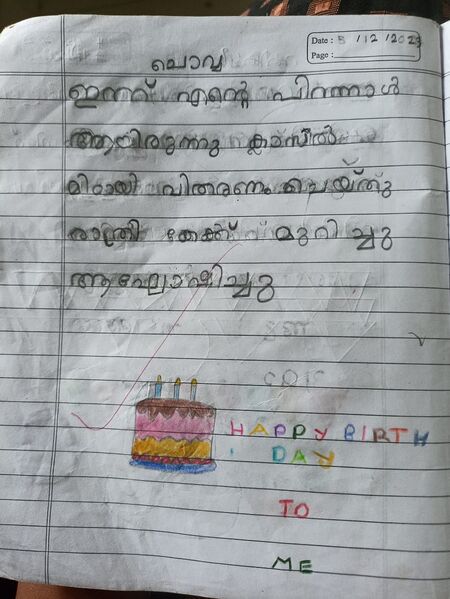 Date : 5 /12 /2023
Page :
ചൊവ്വ
ഇന്ന് എന്റെ പിറന്നാൾ
ആയിരുന്നു ക്ലാസിൽ
മിഠായി വിതരണം ചെയ്തു
രാത്രി കേക്ക് മുറിച്ചു
ആഘോഷിച്ചു
HAPPY BIRTH
DAY
TO
ME